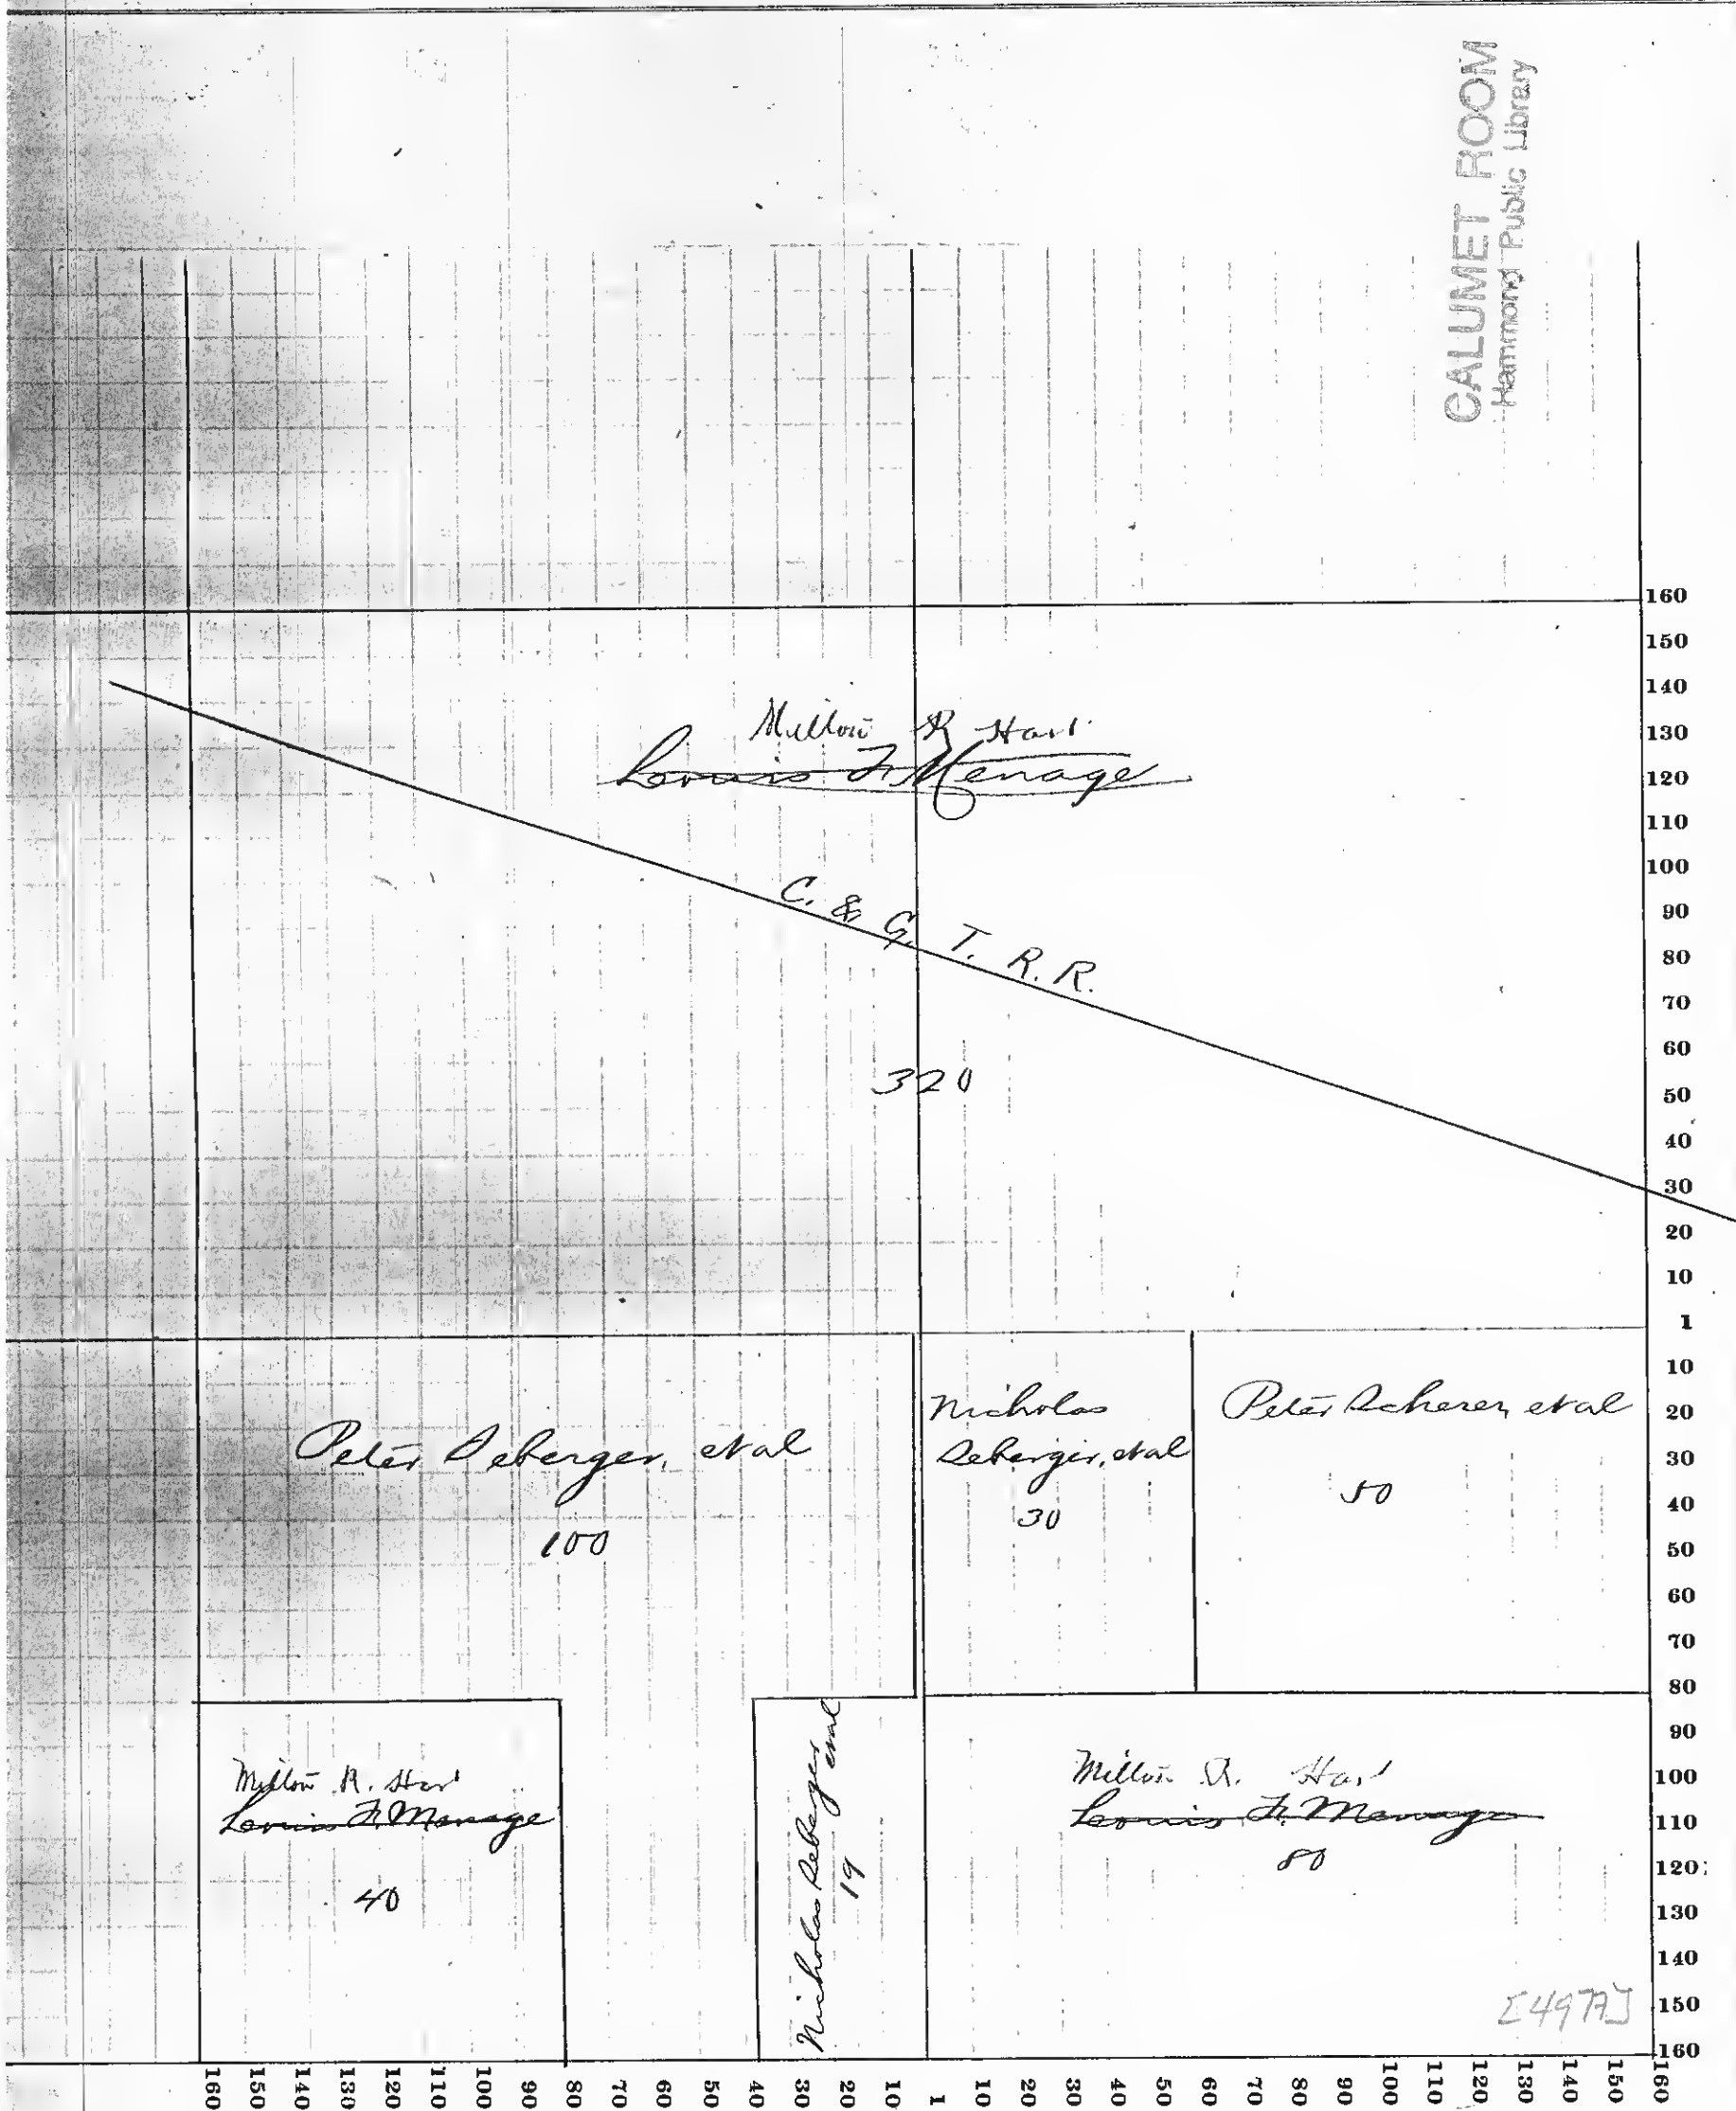 CALUMET ROOM
Hammond Public Library
160
150
140
130
120
110
100
90
80
70
60
50
40
30
20
10
1
10
20
30
40
50
60
70
80
90
100
110
120
130
140
150
160
Milton R Hart
Louis F. Menage
C. & G. T. R. R.
320
Peter Seberger, et al
100
Nicholas
Seberger, et al
30
Peter Scherer, et al
50
Milton R. Hart
Louis F. Menage
40
Nicholas Seberger et al
19
Milton R. Hart
Louis F. Menage
80
[49 7A]
160 150 140 130 120 110 100 90 80 70 60 50 40 30 20 10 1 10 20 30 40 50 60 70 80 90 100 110 120 130 140 150 160